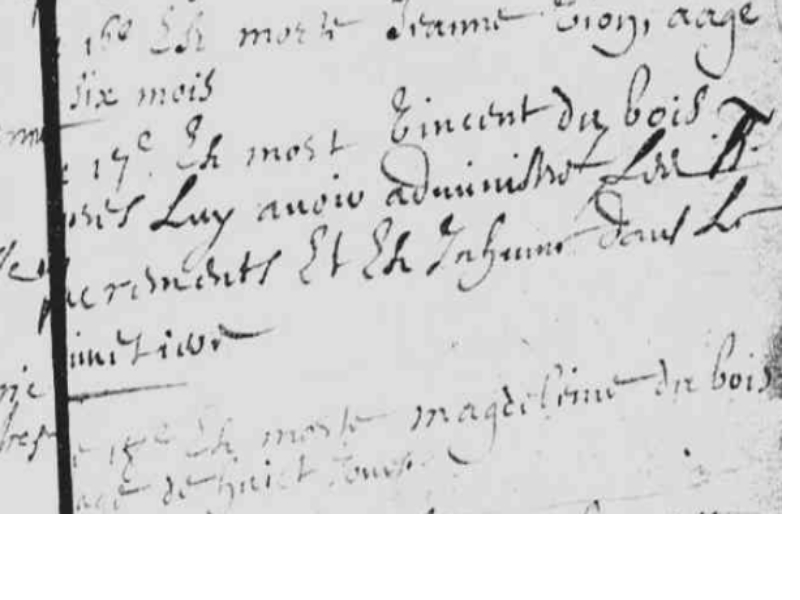 16e Est morte Jeanne Tion, aagé
six mois
17e. Est mort Vincent du bois
pres Luy avoir administré Les St
acrements Et Est Inhumé dans Le
imetiere
18e Est morte magdeleine du bois
agé de huict Jours